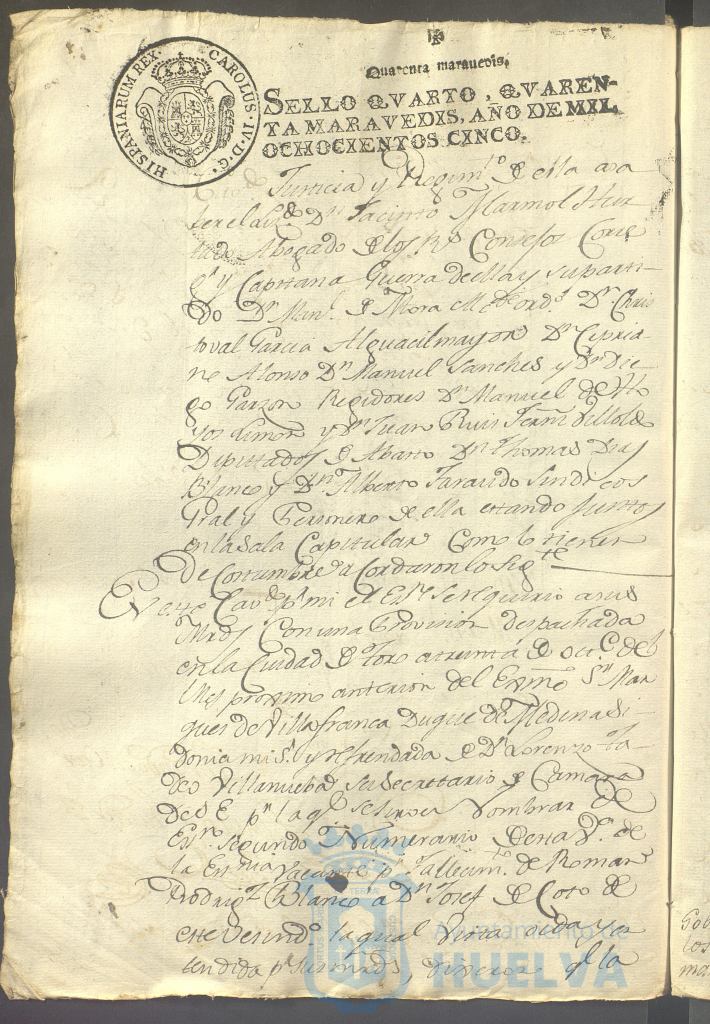 HISPANIARUM REX. CAROLUS. IV. D. G.
Quarenta maravedis.
SELLO QVARTO, QVAREN-
TA MARAVEDIS, AÑO DE MIL
OCHOCIENTOS CINCO.
Justicia y Regim.to de esta
Dn Jacinto Marmol Hur
tado Abogado de los Rs Consejos Corre
y Capitan a Guerra de ella y su parti-
do Dn Man.l de Mora Dn Chris
toval Garcia Alguacil mayor Dn Cipria-
no Alonso Dn Manuel Sanches y Dn Die-
go Garzon Regidores Dn Manuel de
y Dn Juan Ruis
Diputados de Abasto Dn Thomas Dias
Blanco y Dn Alberto Faraudo Sindicos
Gral y Personero de ella estando juntos
en la Sala Capitular como lo tienen
de Costumbre acordaron lo sig.te
En este Cav.do p.r mi el Es.no se requirio a sus
Mrds con una Provision despachada
en la Ciudad de Toro a treinta de Oct.e del
Mes proximo anterior del Exmo Sr Mar
ques de Villafranca Duque de Medina Si
donia mi Sr y refrendada de Dn Lorenzo Ta-
deo Villanueba su Secrettario de Camara
de S E pr la q.e se sirve Nombrar de
Es.no segundo Numerario de esta V.a de
la Vacante pr Fallecim.to de Roman
Rodrig.z Blanco a Dn Josef de Coto de
este Vesind.o la qual vista oida y en
tendida pr sus mrds, dixeron q.e la
Ayuntamiento de
HUELVA